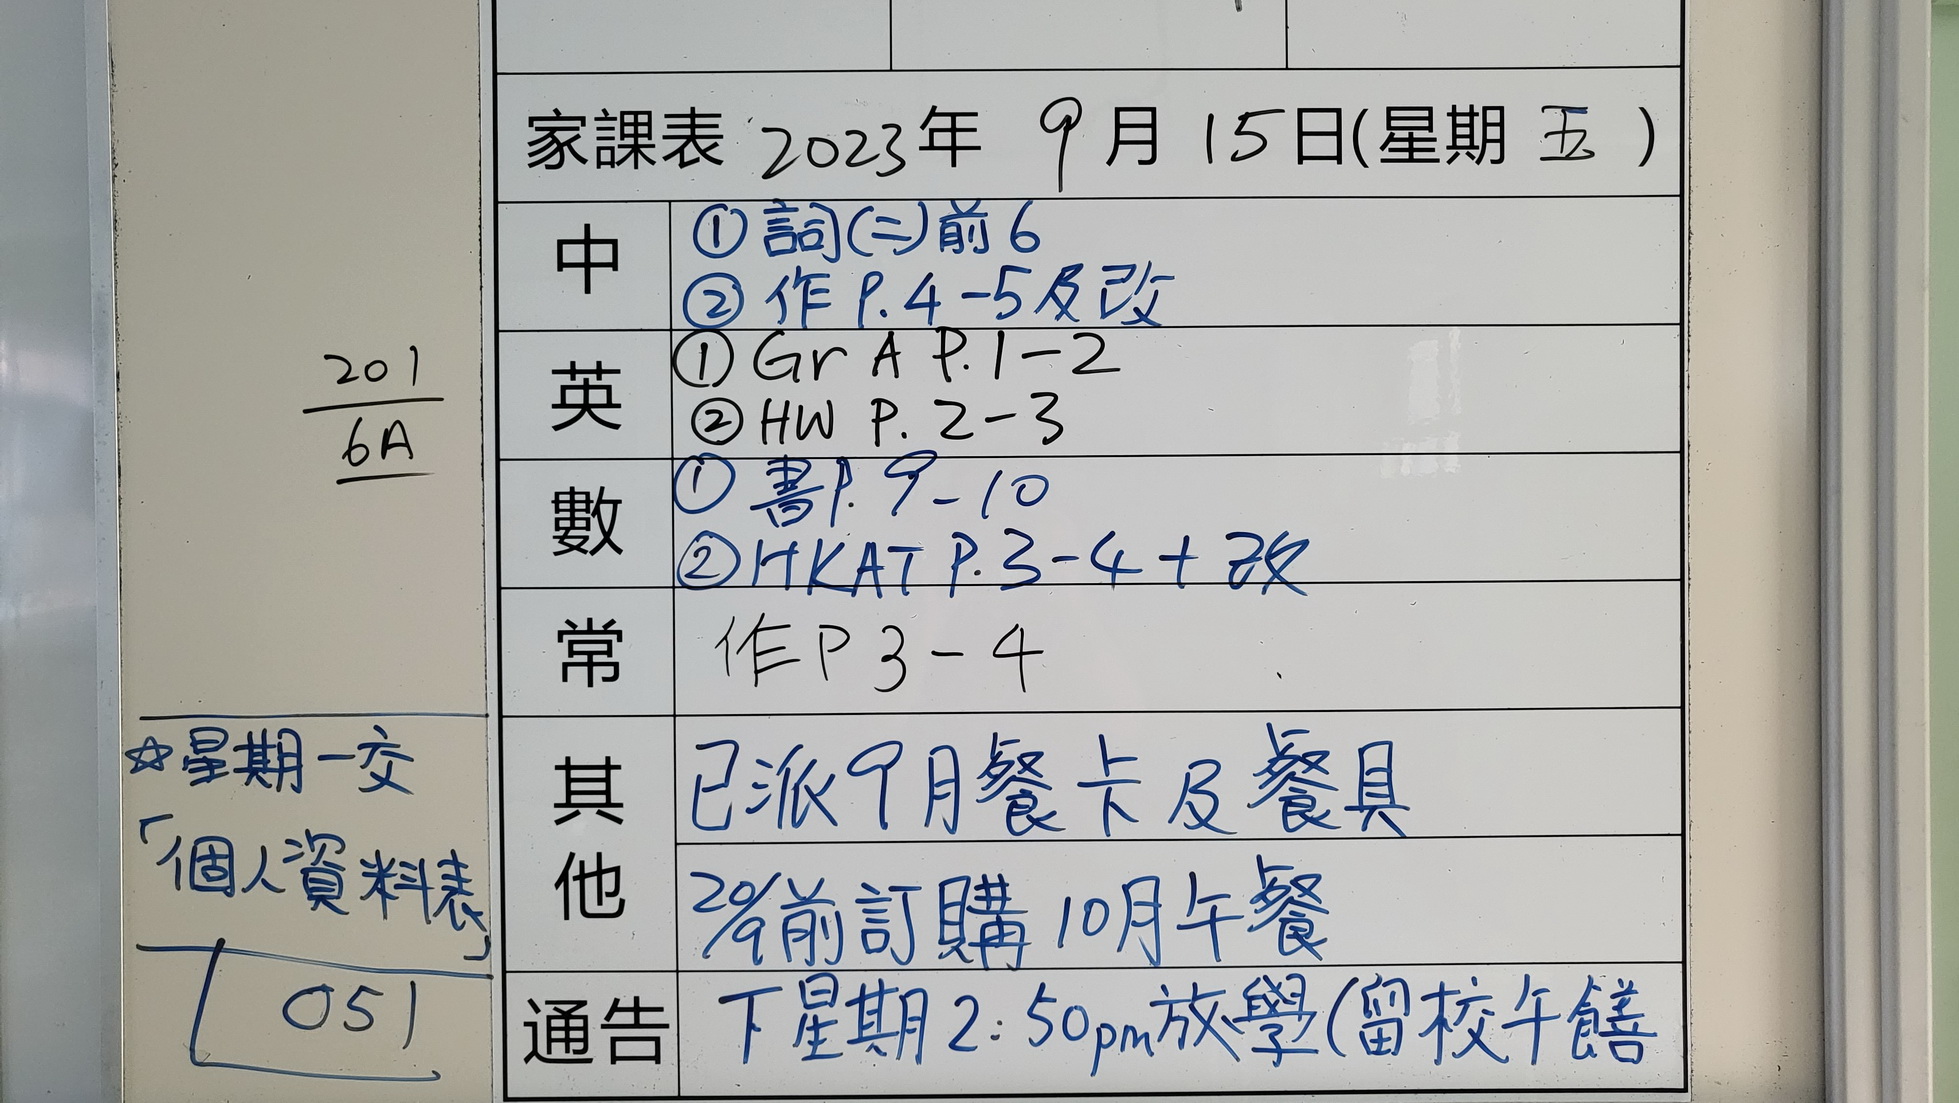 家課表 2023年 9月 15日(星期 五 )
中
① 詞(二)前6
② 作 P.4-5及改
英
① Gr A P.1-2
② HW P.2-3
數
① 書P.9-10
② HKAT P.3-4+改
常
作P3-4
其他
已派9月餐卡及餐具
20/9前訂購10月午餐
通告
下星期2:50pm放學(留校午饍
201
6A
☆星期一交
「個人資料表」
051